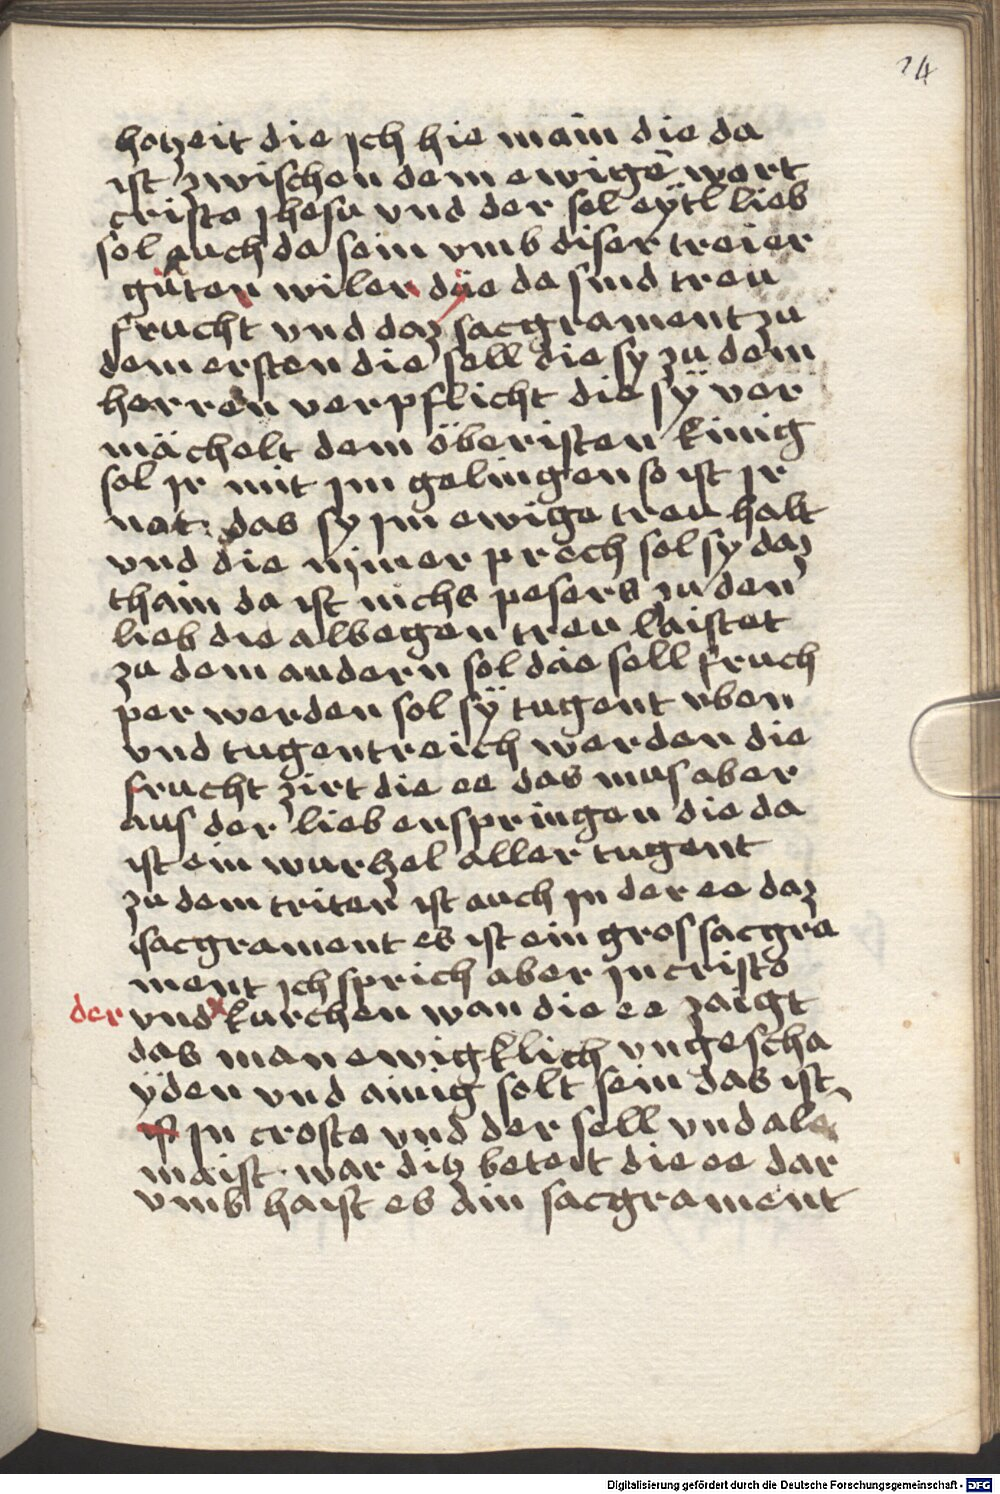 24
hotzeit die jch hie main die da
ist zwischen dem ewigē wort
cristo jhesu vnd der sel eÿtl lieb
sol auch da sein vmb diser treier
guten wilen die da sind treu
frucht vnd daz sacgrament zu
dem ersten die sell die sy zu dem
herren verpflicht die sÿ ver
mächelt dem öberisten kinig
sol jr mit jm gelingen so ist jr
not das sy jm ewige treu halt
vnd die nimer prech sol sy daz
thain da ist nichs pesers zu den
lieb die albegen treu laistet
zu dem andern sol die sell fruch
per werden sol sÿ tugent vben
vnd tugentreich werden die
frucht zirt die ee das mus aber
aus der lieb enspringen die da
ist ein wurtzel aller tugent
zu dem triten ist auch jn der ee daz
sacgrament es ist ein gros sacgra
ment jch sprich aber jn cristo
der vnd kurchen wan die ee zaigt
das man ewigklich vngescha
ÿden vnd ainig solt sein das ist
ist jn crosto vnd der sell vnd ale
maist war ditz beteit die ee dar
vmb haist es ain sacgrament
Digitalisierung gefördert durch die Deutsche Forschungsgemeinschaft - DFG